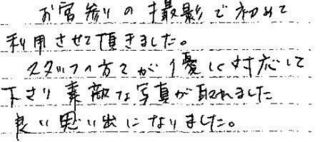 お宮参りの撮影で初めて
利用させて頂きました。
スタッフの方々が優しく対応して
下さり素敵な写真が取れました
良い思い出になりました。